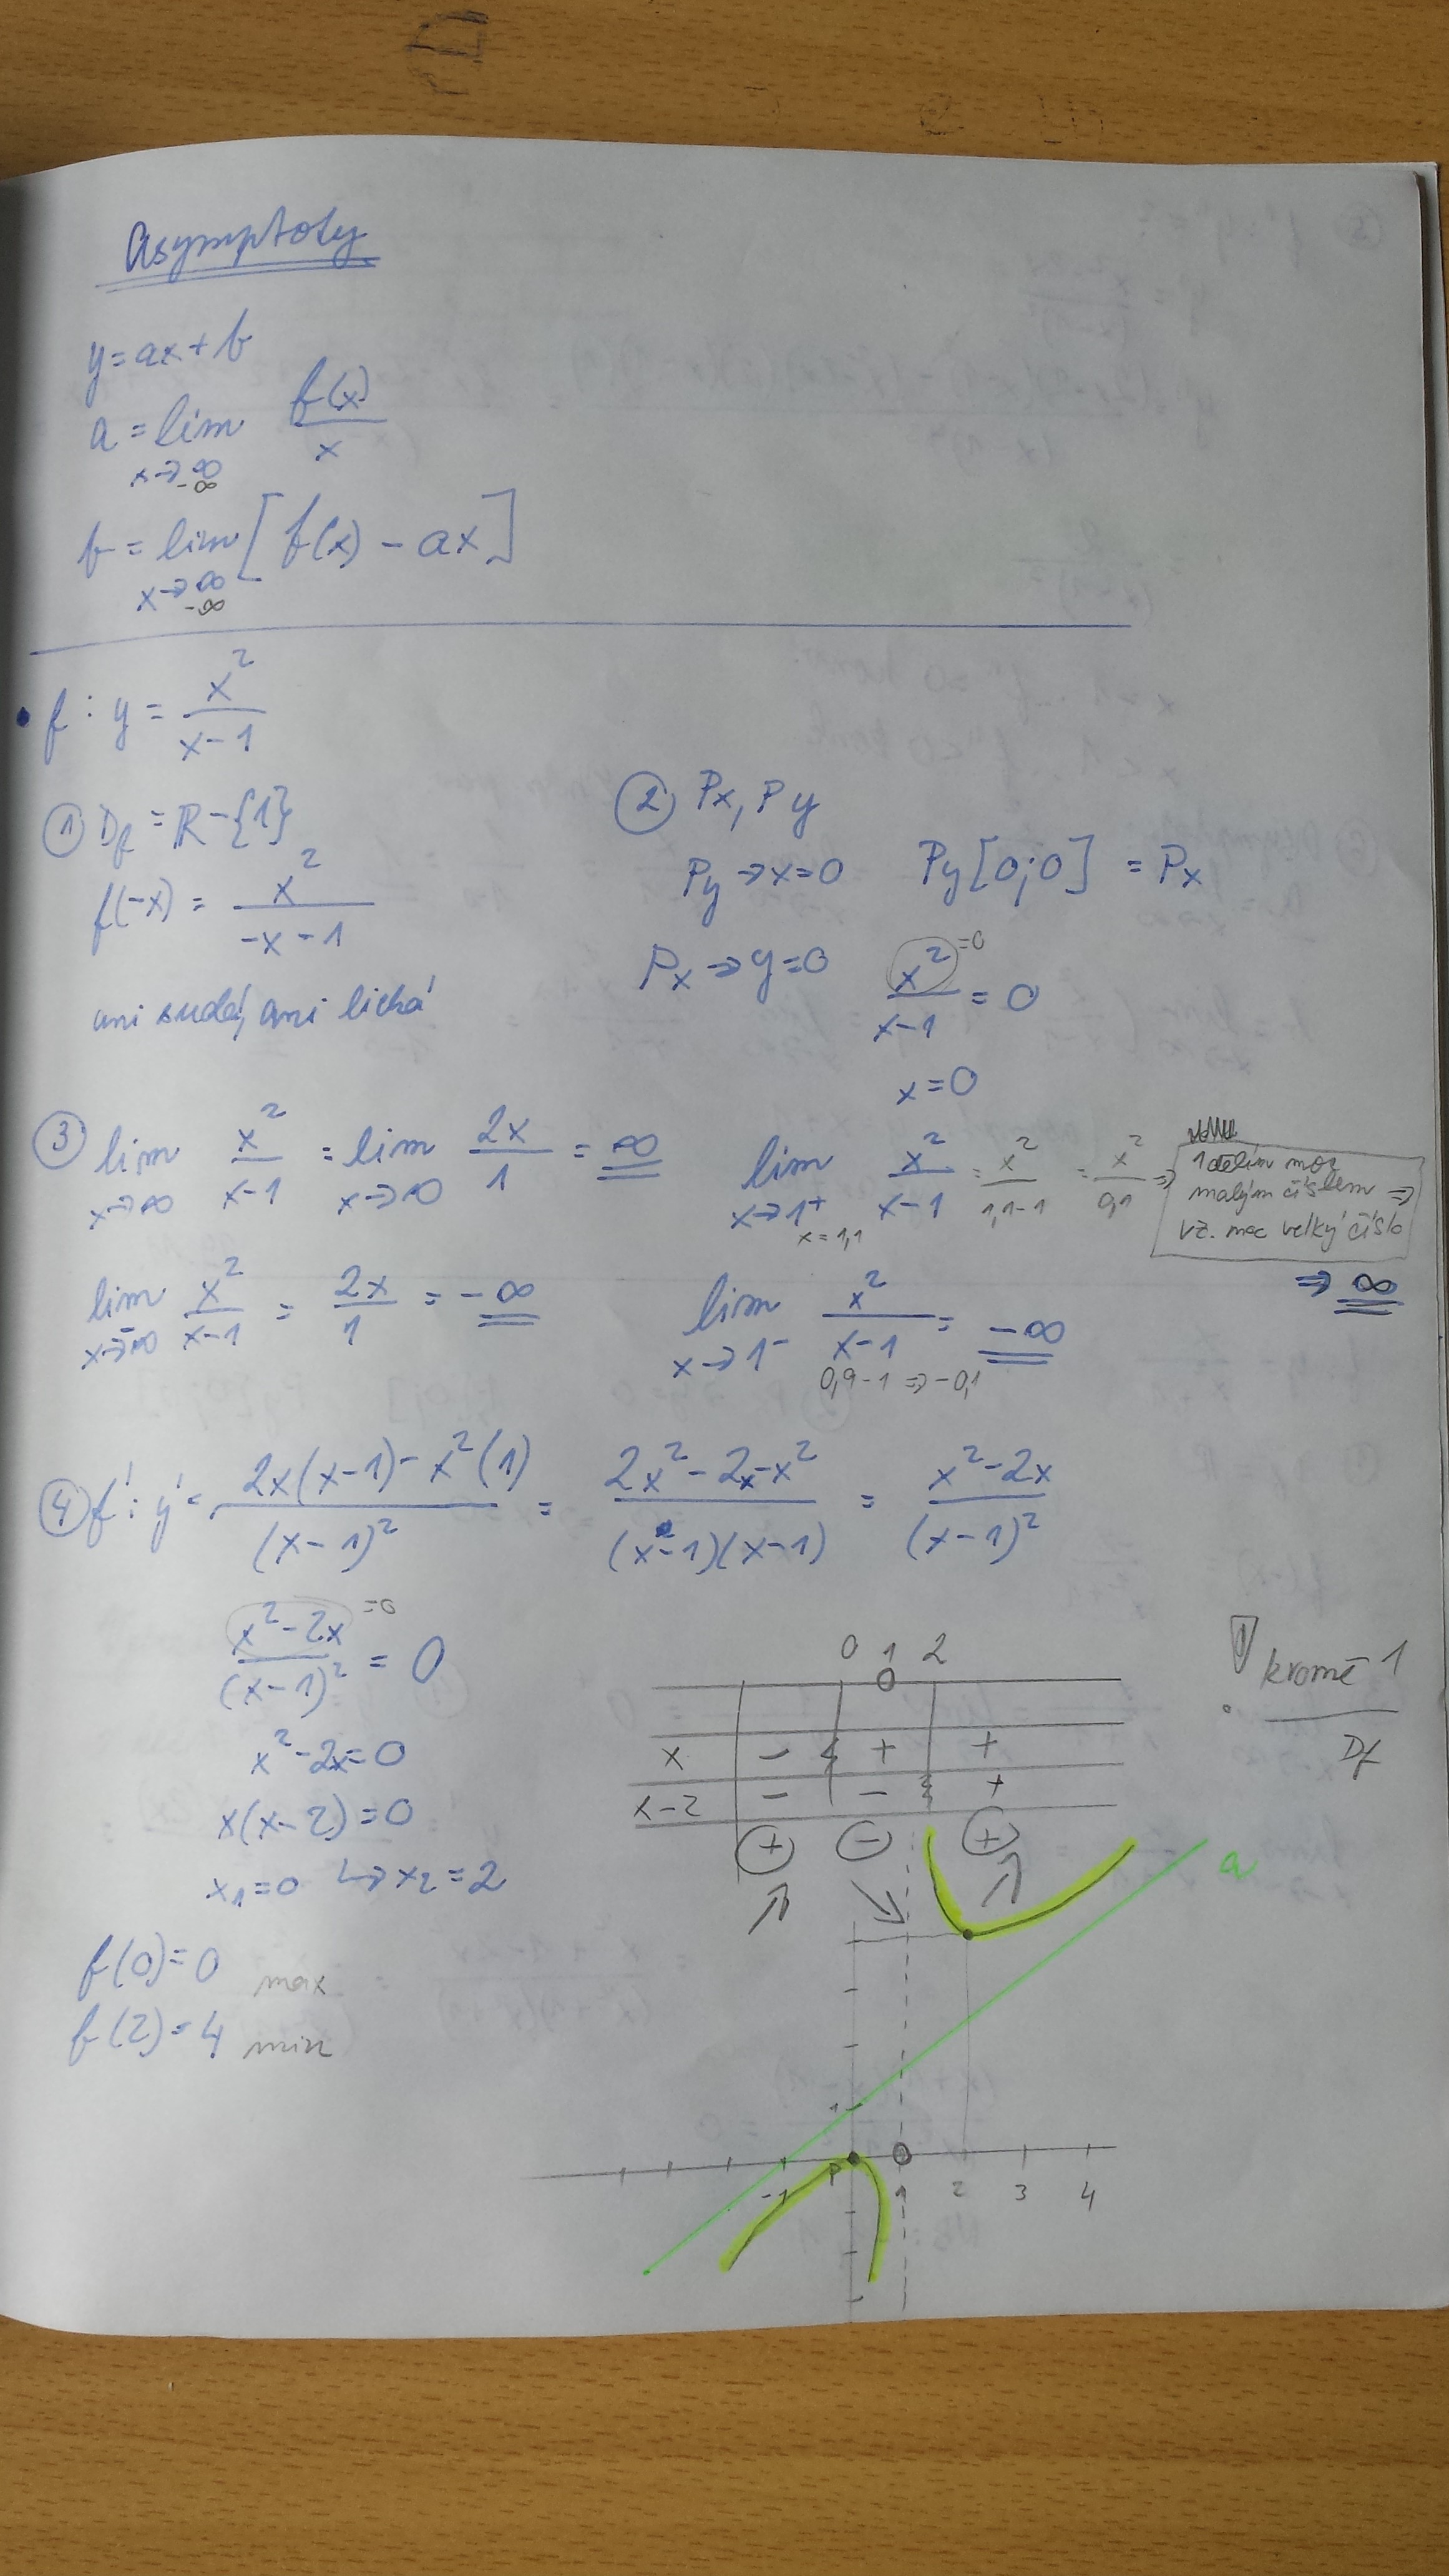 Asymptoty
y = ax + b
a = lim x→∞ -∞ f(x)/x
b = lim x→∞ -∞ [f(x) - ax]
• f: y = x²/(x-1)
① Df = ℝ - {1}
f(-x) = x²/(-x-1)
ani sudá, ani lichá
② Px, Py
Py → x=0 Py[0;0] = Px
Px → y=0 x²/(x-1) = 0 =0
x=0
③ lim x→∞ x²/(x-1) = lim x→∞ 2x/1 = ∞
lim x→1⁺ x²/(x-1) = x²/(1,1-1) = x²/0,1 ⇒
x=1,1
malým číslem ⇒
vz. moc velký číslo
⇒ ∞
lim x→-∞ x²/(x-1) = 2x/1 = -∞
lim x→1⁻ x²/(x-1) = -∞
0,9-1 ⇒ -0,1
④ f': y' = (2x(x-1) - x²(1))/(x-1)² = (2x² - 2x - x²)/((x-1)(x-1)) = (x² - 2x)/(x-1)²
(x² - 2x)/(x-1)² = 0 =0
x² - 2x = 0
x(x-2) = 0
x₁=0 ↳ x₂=2
f(0) = 0 max
f(2) = 4 min
0 1 2
x - + +
x-2 - - +
+ - +
↗ ↘ ↗
! kromě 1
Df
a
1
-1 P 1 2 3 4